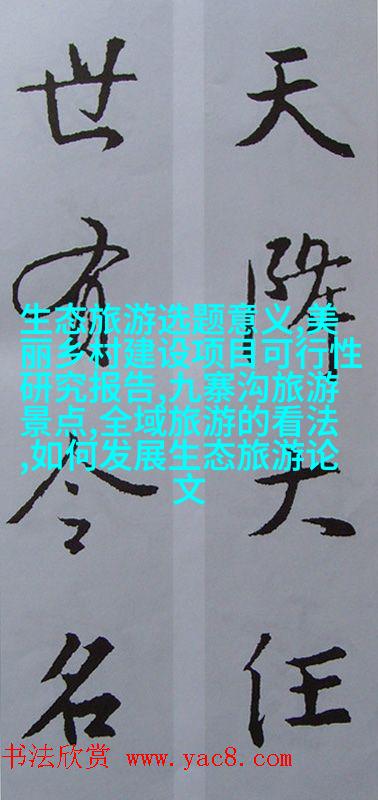 天降大任
世有令名
生态旅游选题意义,美
丽乡村建设项目可行性
研究报告,九寨沟旅游
景点,全域旅游的看法
,如何发展生态旅游论
文
书法欣赏 www.yac8.com